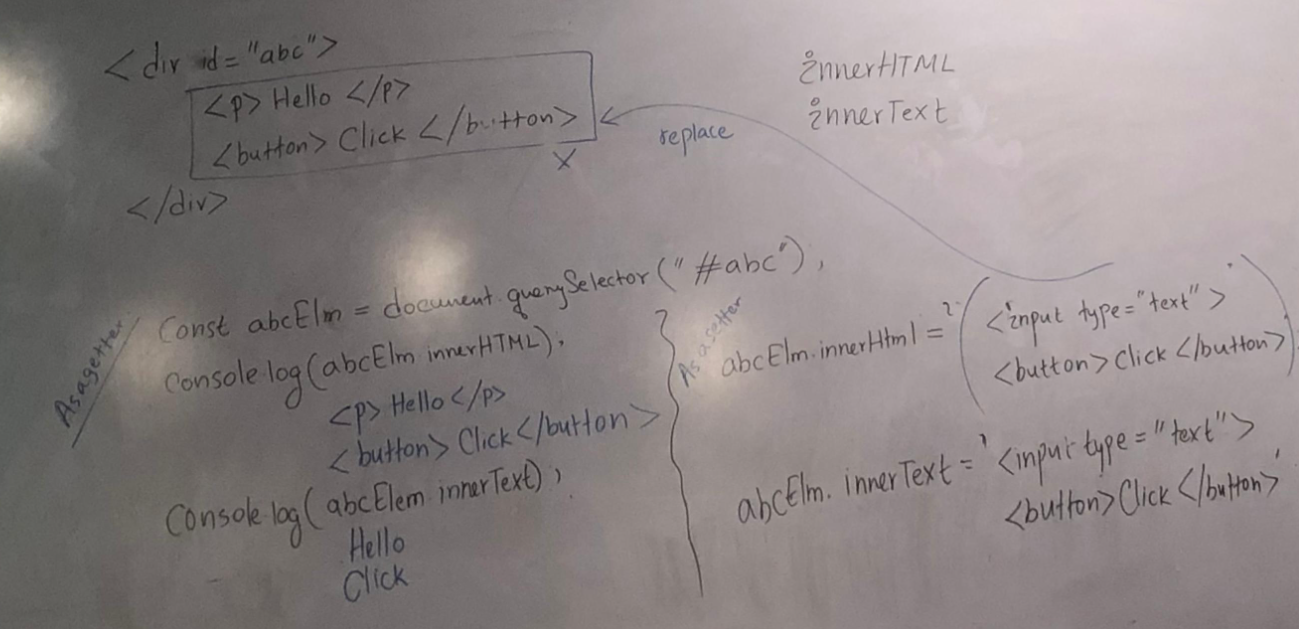 <div id="abc">
<p> Hello </p>
<button> Click </button>
X
</div>
replace
innerHTML
innerText
As a getter
Const abcElm = document.querySelector("#abc");
Console.log(abcElm.innerHTML);
<p> Hello </p>
<button> Click </button>
Console.log(abcElem.innerText);
Hello
Click
As a setter
abcElm.innerHtml = '<input type="text">
<button> Click </button>'
abcElm.innerText = '<input type="text">
<button> Click </button>'